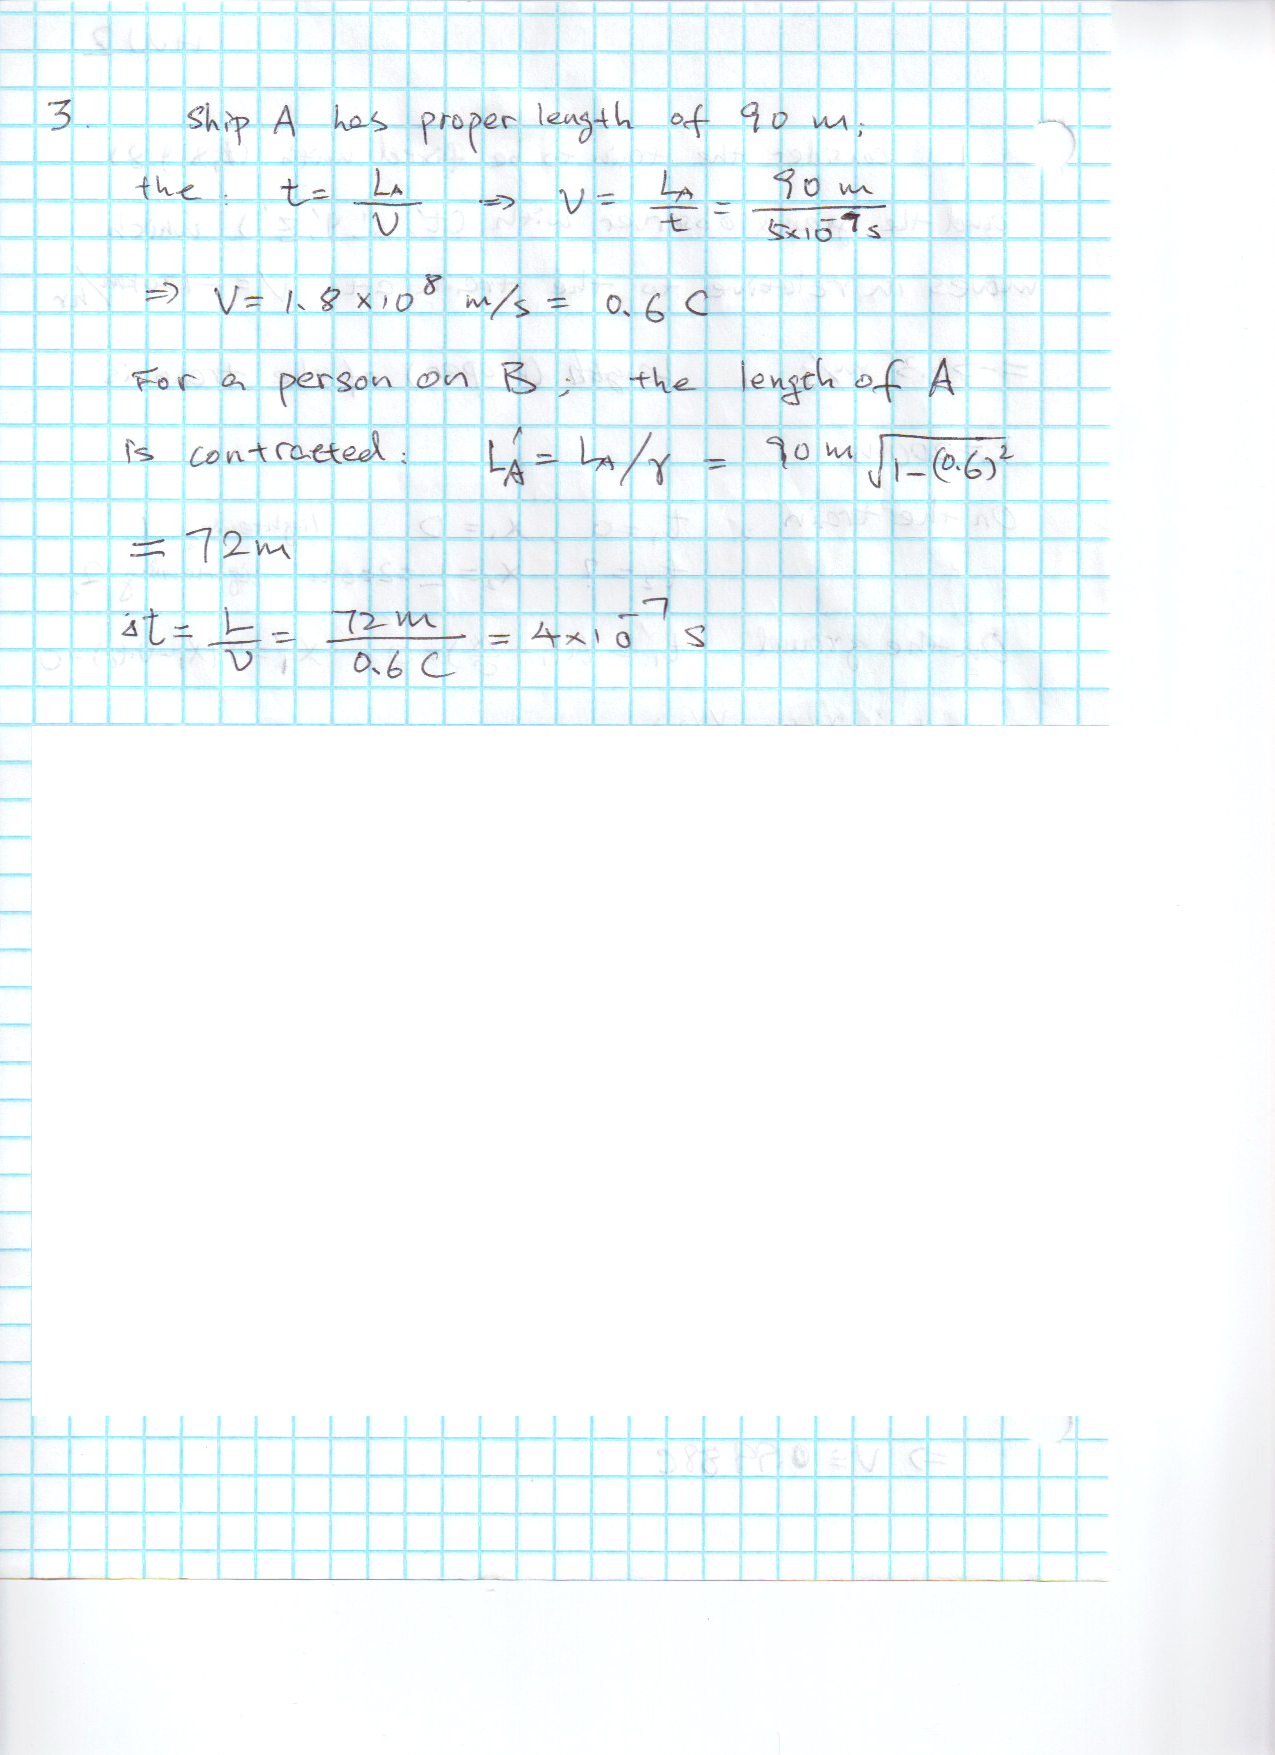 3. Ship A has proper length of 90 m;
the: t = L_A / V ⇒ V = L_A / t = 90 m / 5×10⁻⁷ s
⇒ V = 1.8 × 10⁸ m/s = 0.6 C
For a person on B; the length of A
is contracted: L'_A = L_A/γ = 90 m √(1-(0.6)²)
= 72 m
Δt = L / V = 72 m / 0.6 C = 4×10⁻⁷ s